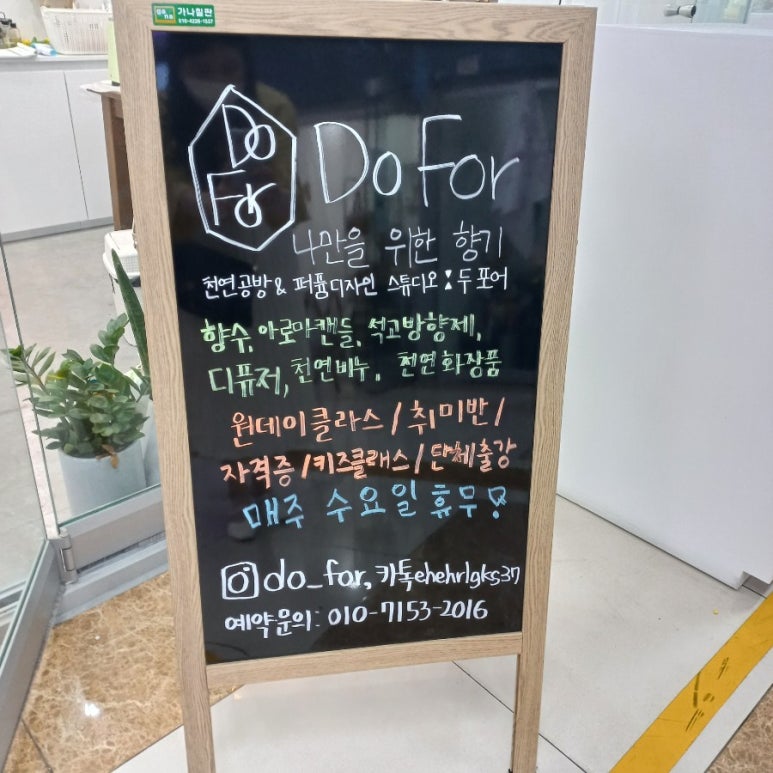 가나칠판
Do
For
Do For
나만을 위한 향기
천연공방 & 퍼퓸디자인 스튜디오 : 두포어
향수, 아로마캔들, 석고방향제,
디퓨저, 천연비누, 천연화장품
원데이클라스 / 취미반 /
자격증 / 키즈클래스 / 단체출강
매주 수요일 휴무!
do_for, 카톡ehehrlgks37
예약문의: 010-7153-2016